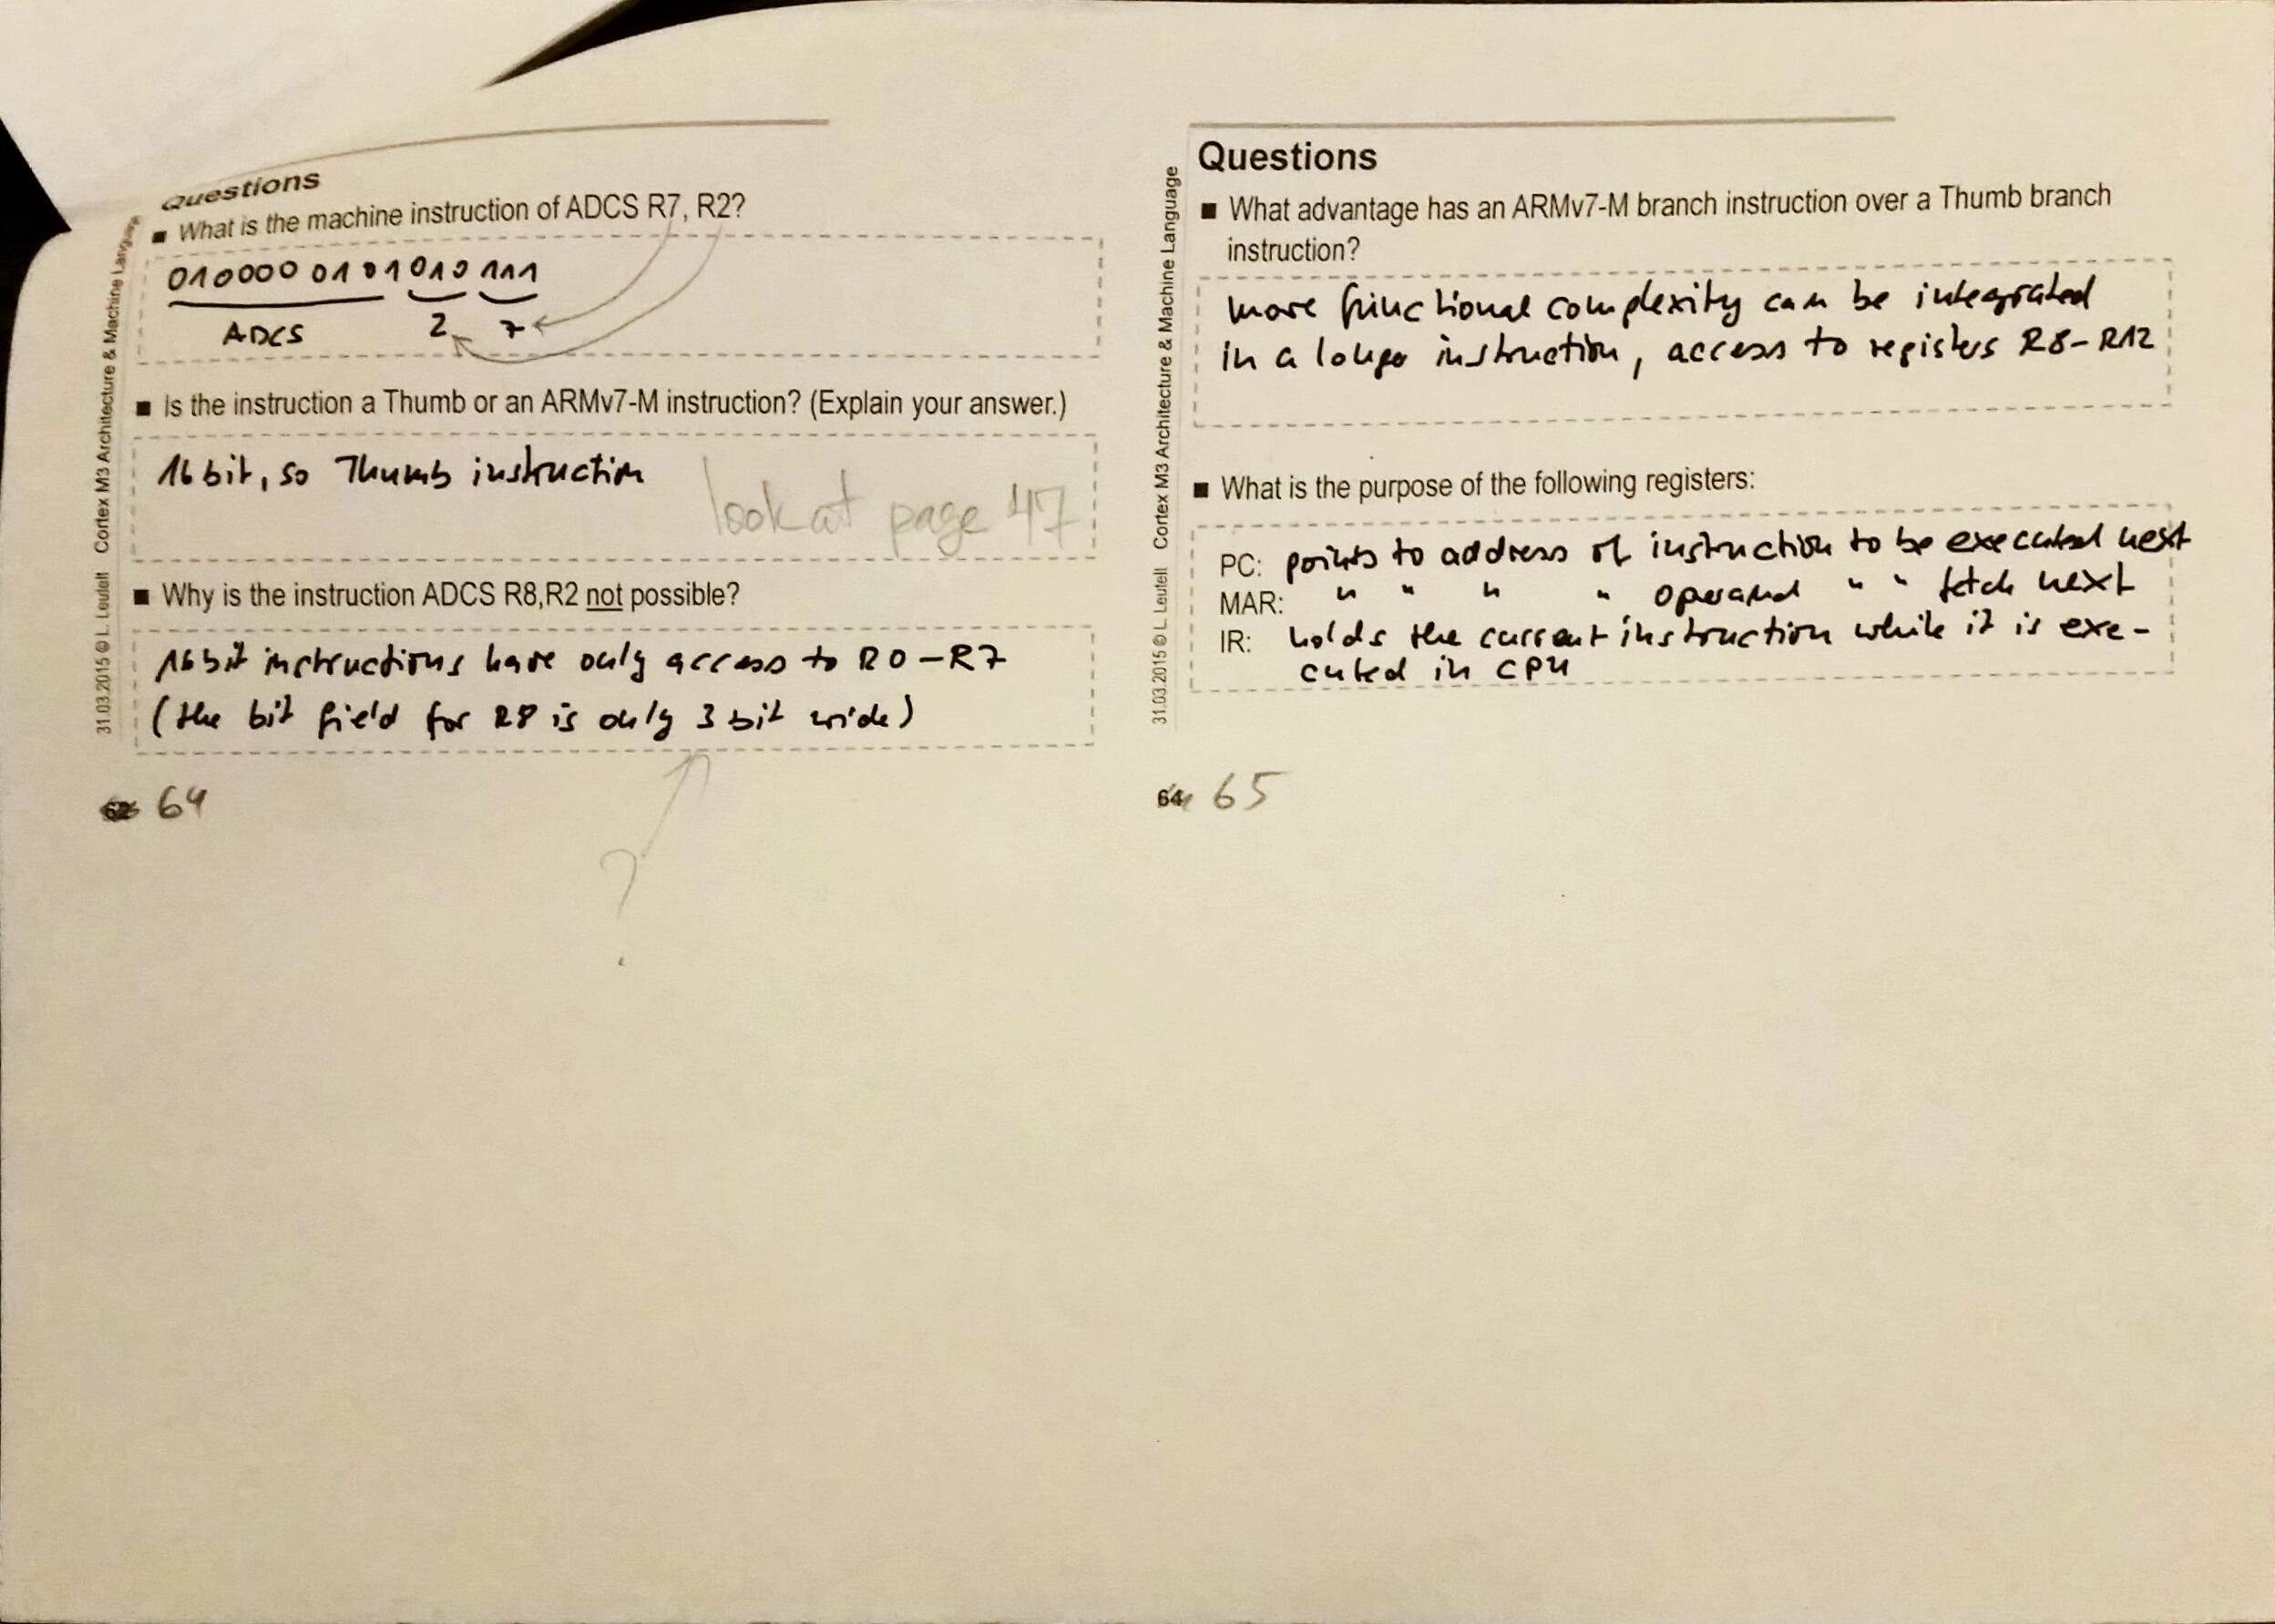 Questions
■ What is the machine instruction of ADCS R7, R2?
010000 0101 010 111
ADCS 2 7
■ Is the instruction a Thumb or an ARMv7-M instruction? (Explain your answer.)
16 bit, so Thumb instruction
look at page 47
■ Why is the instruction ADCS R8,R2 not possible?
16 bit instructions have only access to R0-R7
(the bit field for R8 is only 3 bit wide)
?
31.03.2015 © L. Leutelt Cortex M3 Architecture & Machine Language
62 64
Questions
■ What advantage has an ARMv7-M branch instruction over a Thumb branch
instruction?
more functional complexity can be integrated
in a longer instruction, access to registers R8-R12
■ What is the purpose of the following registers:
PC: points to address of instruction to be executed next
MAR: " " " " operand " " fetch next
IR: holds the current instruction while it is exe-
cuted in CPU
31.03.2015 © L. Leutelt Cortex M3 Architecture & Machine Language
64 65